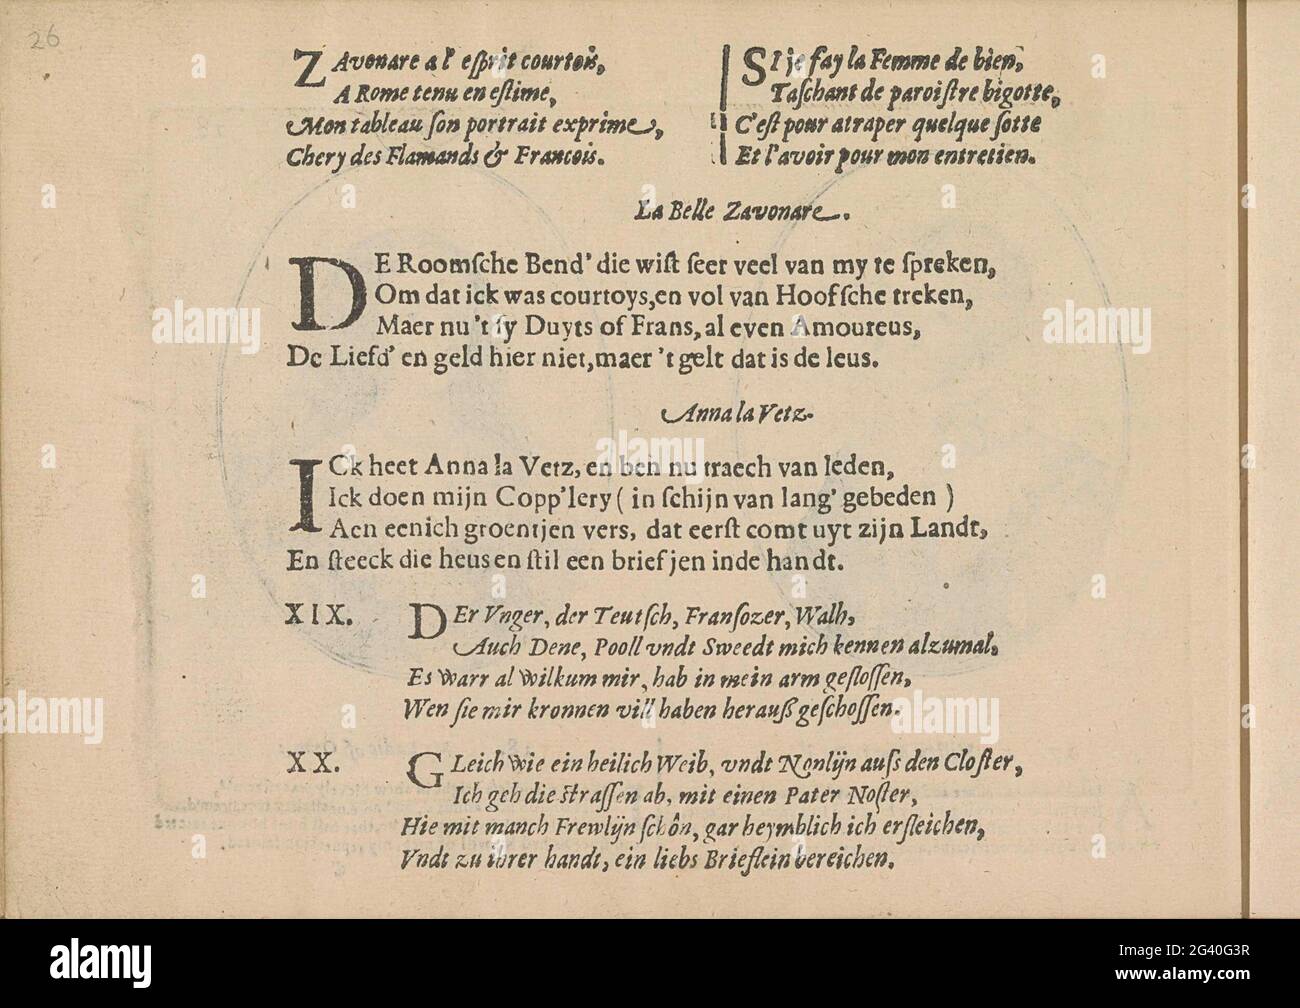 26
ZAvonare a l' esprit courtois,
A Rome tenu en estime,
Mon tableau son portrait exprime,
Chery des Flamands & Francois.
SI je fay la Femme de bien,
Taschant de paroistre bigotte,
C'est pour atraper quelque sotte
Et l'avoir pour mon entretien.
La Belle Zavonare.
DE Roomsche Bend' die wist seer veel van my te spreken,
Om dat ick was courtoys, en vol van Hoofsche treken,
Maer nu 't sy Duyts of Frans, al even Amoureus,
De Liefd' en geld hier niet, maer 't gelt dat is de leus.
Anna la Vetz.
ICk heet Anna la Vetz, en ben nu traech van leden,
Ick doen mijn Copp'lery ( in schijn van lang' gebeden )
Aen eenich groentjen vers, dat eerst comt uyt zijn Landt,
En steeck die heus en stil een briefjen inde handt.
XIX. DEr Vnger, der Teutsch, Fransozer, Walh,
Auch Dene, Pooll vndt Sweedt mich kennen alzumal,
Es warr al wilkum mir, hab in mein arm geslossen,
Wen sie mir kronnen vill haben herauß geschossen.
XX. GLeich wie ein heilich Weib, vndt Nonlijn auss den Closter,
Ich geh die strassen ab, mit einen Pater Noster,
Hie mit manch Frewlijn schôn, gar heymblich ich ersleichen,
Vndt zu ihrer handt, ein liebs Brieflein bereichen.
alamy
Image ID: 2G40G3R
www.alamy.com